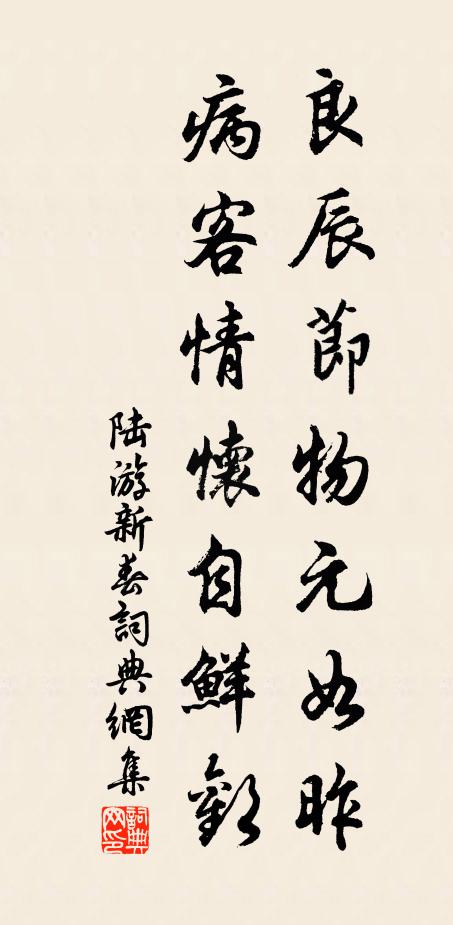 良辰節物元如昨
病客情懷自鮮歡
陸游新春詞典網集
詞典網印